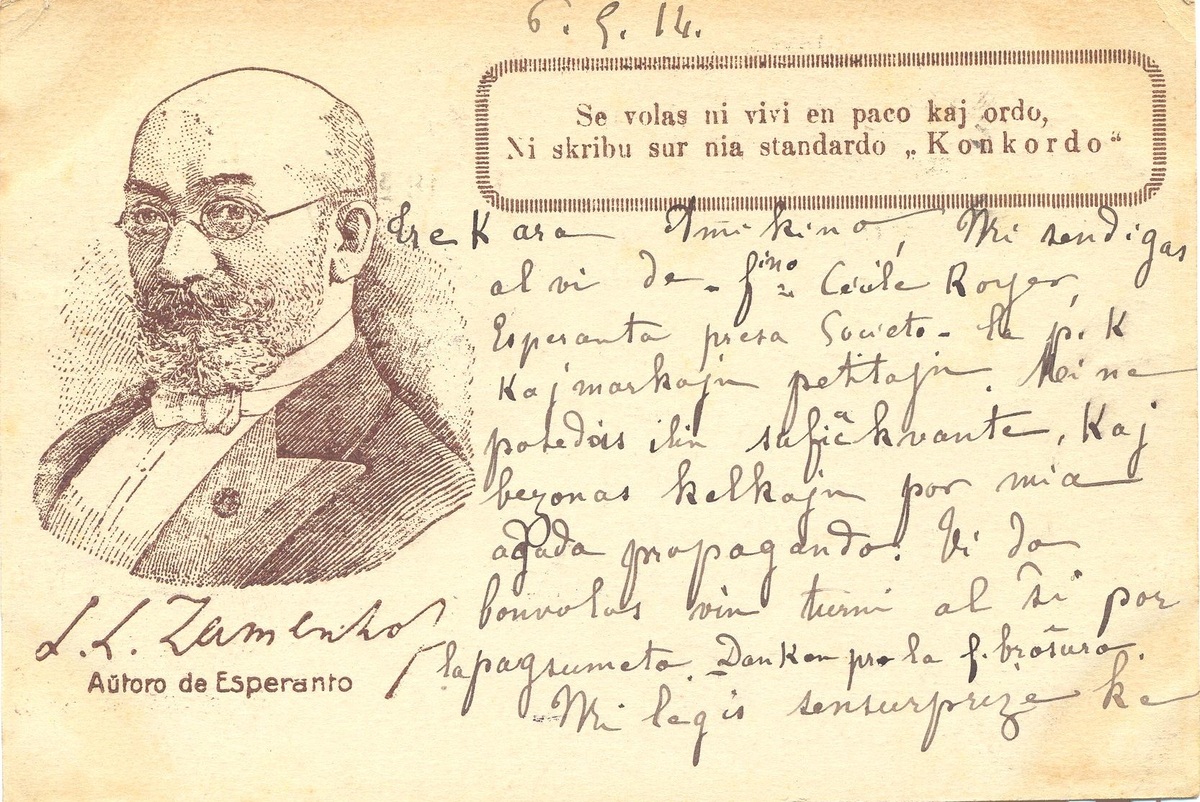 6. 5. 14.
Se volas ni vivi en paco kaj ordo,
Ni skribu sur nia standardo „Konkordo“
Tre Kara Amikino, Mi sendigas
al vi de fino Cécile Royer,
Esperanta presa Societo - la p. K
kaj markajn petitajn. Mi ne
posedas ilin sufiĉe kvante, Kaj
bezonas kelkajn por mia
agada propagando. Vi do
bonvolas vin turni al ŝi por
la pagsumeto. Dankon pro la f. broŝuro.
Mi legis sensurprize ke
L. L. Zamenhof
Aŭtoro de Esperanto